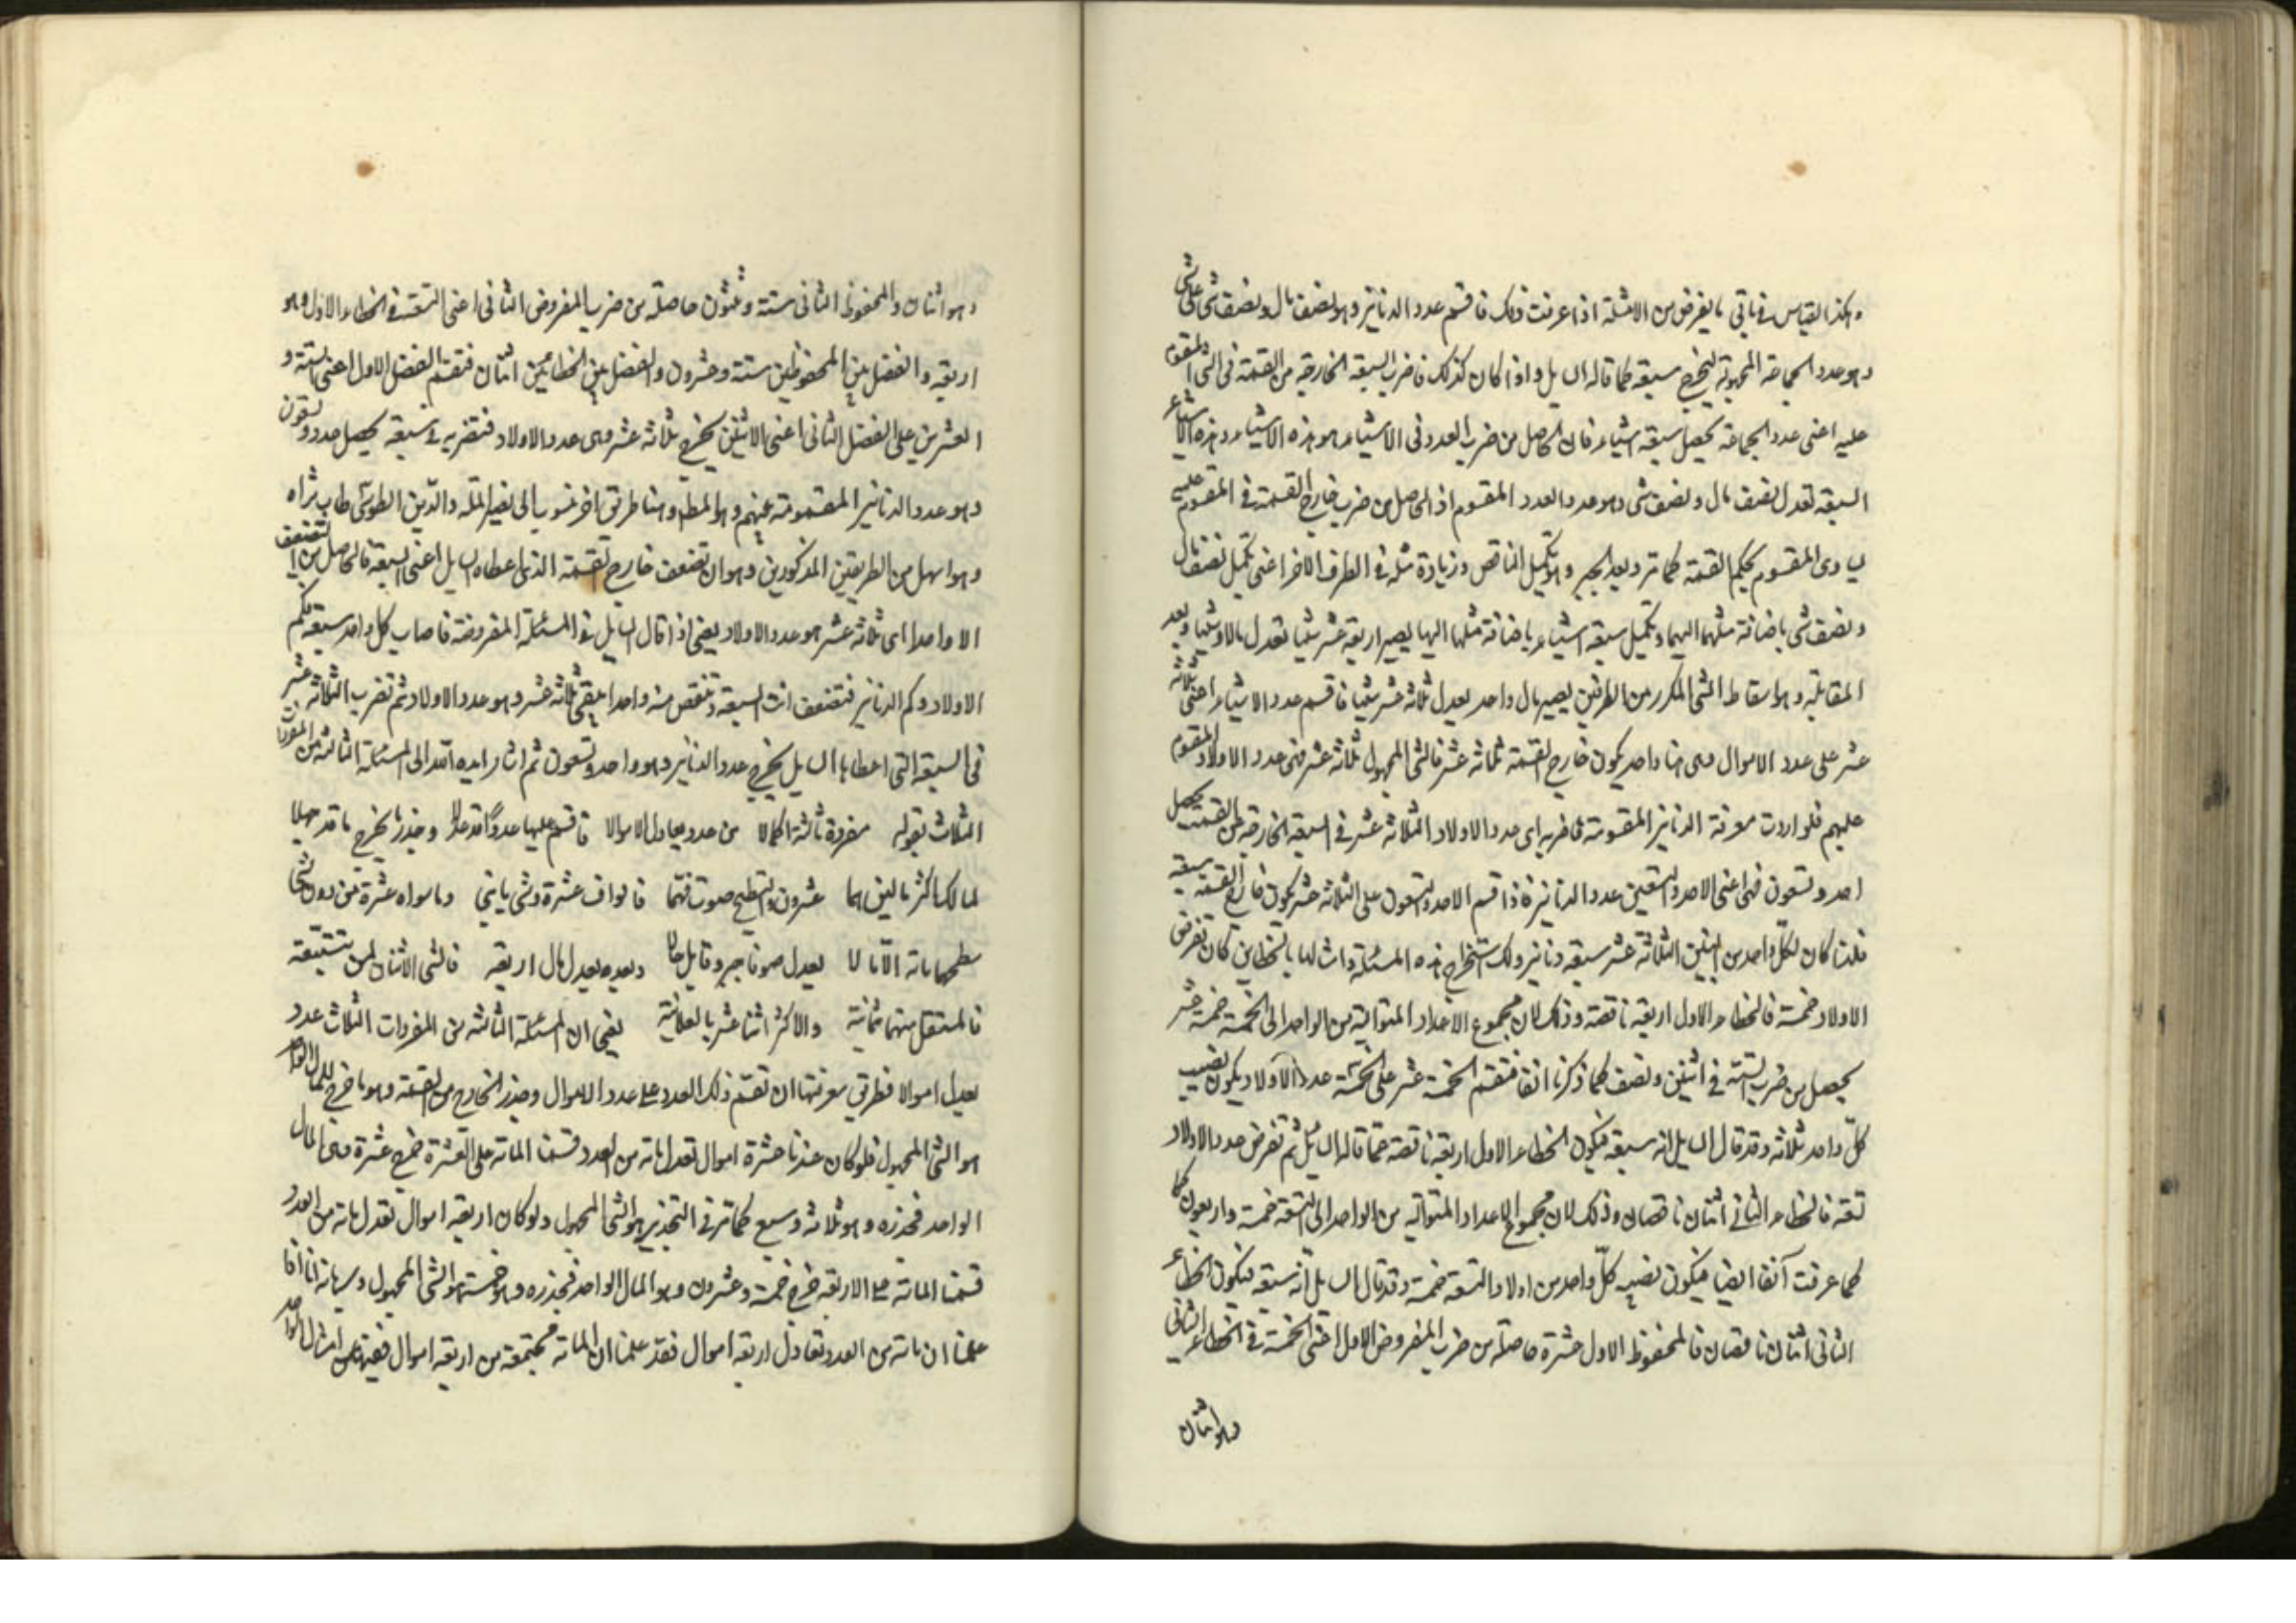 وهكذا القياس في باقي ما يفرض من الامثلة اذا عرفت ذلك فاقسم عدد الدنانير وهو نصف مال ونصف شئ على شئ
وهو عدد الجماعة المجهولة ليخرج سبعة كما قاله السايل واذا كان كذلك فاضرب السبعة الخارجة من القسمة في الشئ المقسوم
عليه اعنى عدد الجماعة يحصل سبعة اشياء فان الحاصل من ضرب العدد في الاشياء هو هذه الاشياء وهذه الاشياء
السبعة تعدل نصف مال ونصف شئ وهو عدد العدد المقسوم اذ الحاصل من ضرب خارج القسمة في المقسوم عليه
يساوى المقسوم بحكم القسمة كما مر وبعد الجبر وهو تكميل الناقص وزيادة مثله في الطرف الاخر اعنى تكميل نصف مال
ونصف شئ باضافة مثلهما اليهما وتكميل سبعة اشياء باضافة مثلها اليها يصير اربعة عشر شيئا تعدل مالا وشيئا وبعد
المقابلة وهو اسقاط الشئ المكرر من الطرفين يصير مال واحد يعدل ثلاثة عشر شيئا فاقسم عدد الاشياء اعنى ثلاثة
عشر على عدد الاموال وهى هنا واحد يكون خارج القسمة ثلاثة عشر فالشئ المجهول ثلاثة عشر فهى عدد الاولاد المقسوم
عليهم فلو اردت معرفة الدنانير المقسومة فاضربه اى عدد الاولاد الثلاثة عشر في السبعة الخارجة من القسمة يحصل
احد وتسعون فهى اعنى الاحد والتسعين عدد الدنانير فاذا قسم الاحد والتسعون على الثلاثة عشر يكون خارج القسمة سبعة
فلذا كان لكل واحد من البنين الثلاثة عشر سبعة دنانير ولك استخراج هذه المسئلة وامثالها بالخطاين كان تفرض
الاولاد خمسة فالخطاء الاول اربعة ناقصة وذلك لان مجموع الاعداد المتوالية من الواحد الى الخمسة خمسة عشر
يحصل من ضرب الستة في اثنين ونصف كما ذكرنا انفا فتقسم الخمسة عشر على الخمسة عدد الاولاد يكون نصيب
كل واحد ثلاثة وقد قال السايل انه سبعة فيكون الخطاء الاول اربعة ناقصة عما قاله السايل ثم تفرض عدد الاولاد
تسعة فالخطاء الثاني اثنان ناقصان وذلك لان مجموع الاعداد المتوالية من الواحد الى التسعة خمسة واربعون كما
كما عرفت آنفا ايضا فيكون نصيب كل واحد من اولاد التسعة خمسة وقد قال السايل انه سبعة فيكون الخطاء
الثاني اثنان ناقصان فالمحفوظ الاول عشرة حاصلة من ضرب المفروض الاول اعنى الخمسة في الخطاء الثاني
وهو اثنان
وهو اثنان والمحفوظ الثانى ستة وثلثون حاصلة من ضرب المفروض الثانى اعنى التسعة في الخطاء الاول وهو
اربعة والفضل بين المحفوظين ستة وعشرون والفضل بين الخطاءين اثنان فتقسم الفضل الاول اعنى الستة و
العشرين على الفضل الثانى اعنى الاثنين يخرج ثلاثة عشر وهى عدد الاولاد فتضربه في سبعة يحصل احد وتسعون
وهو عدد الدنانير المقسومة عليهم وهو المط وهنا طريق اخر منسوب الى نصير الملة والدين الطوسى طاب ثراه
وهو اسهل من الطريقين المذكورين وهو ان تضعف خارج القسمة الذى اعطاه السايل اعنى السبعة فالحاصل من التضعيف
الا واحدا اى ثلاثة عشر هو عدد الاولاد يعنى اذا قال السايل في المسئلة المفروضة فاصاب كل واحد سبعة فكم
الاولاد وكم الدنانير فتضعف انت السبعة وتنقص منه واحدا يبقى ثلاثة عشر وهو عدد الاولاد ثم تضرب الثلاثة عشر
في السبعة التى اعطاها السايل يخرج عدد الدنانير وهو واحد وتسعون ثم اشار ايده الله الى المسئلة الثالثة من المفردات
الثلاث بقوله مفردة ثالثة اكمالا من عدد يعادل الاموالا فاقسم عليها عددا قد عدلا وجذر ما يخرج ما قد جهلا
لمالك اكثر مالين هما عشرون والتسطيح صوت فهما فالواف عشرة وشئ ياتى وما سواه عشرة من دون شئ
سطحهما مائة الا مالا يعدل صونا جبر وقابل حالا وبعده يعدل مال اربعة فالشئ الاثنان لمن تتبعه
فالمستقل منهما ثمانية والاكثر اثنا عشر بالعلانية يعنى ان المسئلة الثالثة من المفردات الثلاث عدد
يعدل اموالا فطريق معرفتها ان تقسم ذلك العدد على عدد الاموال وجذر الخارج من القسمة وهو ما خرج للمال الواحد
هو الشئ المجهول فلو كان عندنا عشرة اموال تعدل مائة من العدد قسمنا المائة على العشرة خرج عشرة وهى المال
الواحد فجذره وهو ثلاثة وسبع كما مر في التجذير هو الشئ المجهول ولو كان اربعة اموال تعدل مائة من العدد
قسمنا المائة على الاربعة خرج خمسة وعشرون وهو المال الواحد فجذره وهو خمسة هو الشئ المجهول وبرهانه انا اذا
علمنا ان مائة من العدد تعادل اربعة اموال فقد علمنا ان المائة مجتمعة من اربعة اموال امثال الواحد